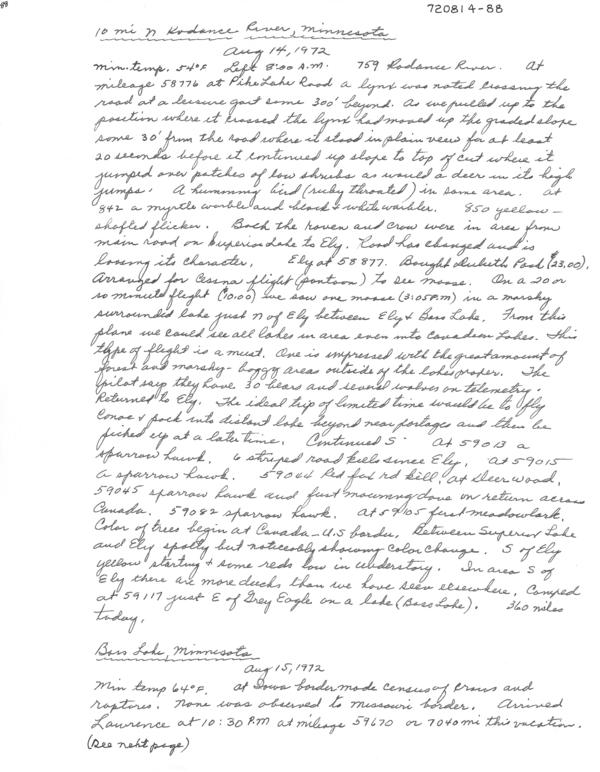 88
720814-88
10 mi N Kodance River, Minnesota
Aug 14, 1972
Min. temp. 54°F Left 8:00 A.M. 759 Kodance River. At
mileage 58776 at Pike Lake Road a lynx was noted crossing the
road at a leisure gait some 300' beyond. As we pulled up to the
position where it crossed the lynx had moved up the graded slope
some 30' from the road where it stood in plain view for at least
20 seconds before it continued up slope to top of cut where it
jumped over patches of low shrubs as would a deer in its high
jumps. A humming bird (ruby throated) in same area. At
842 a myrtle warbler and black & white warbler. 850 yellow-
shafted flicker. Both the raven and crow were in area from
main road on Superior Lake to Ely. Road has changed and is
loosing its character. Ely at 58877. Bought Duluth Pack ($23.00).
Arranged for Cessna flight (pontoon) to see moose. On a 20 or
so minute flight ($10.00) we saw one moose (3:05 P.M) in a marshy
surrounded lake just N of Ely between Ely & Bass Lake. From this
plane we could see all lakes in area even into Canadian Lakes. This
type of flight is a must. One is impressed with the great amount of
forest and marshy-boggy areas outside of the lakes proper. The
pilot say they have 30 bears and several wolves on telemetry.
Returned to Ely. The ideal trip of limited time would be to fly
canoe & pack into distant lake beyond near portages and then be
picked up at a later time. Continued S. At 59013 a
sparrow hawk. 6 striped road kills since Ely. At 59015
a sparrow hawk. 59044 Red fox rd kill, at Deerwood,
59045 sparrow hawk and first mourning dove on return across
Canada. 59082 sparrow hawk. At 59105 first meadowlark.
Color of trees begin at Canada-U.S border. Between Superior Lake
and Ely spotty but noticeably showing color change. S of Ely
yellow starting & some reds low in understory. In area S of
Ely there are more ducks than we have seen elsewhere. Camped
at 59117 just E of Grey Eagle on a lake (Bass Lake). 360 miles
today.
Bass Lake, Minnesota
Aug 15, 1972
Min temp 64°F. At Iowa border made census of crows and
raptores. None was observed to Missouri border. Arrived
Lawrence at 10:30 P.M at mileage 59670 or 7040 mi this vacation.
(See next page)